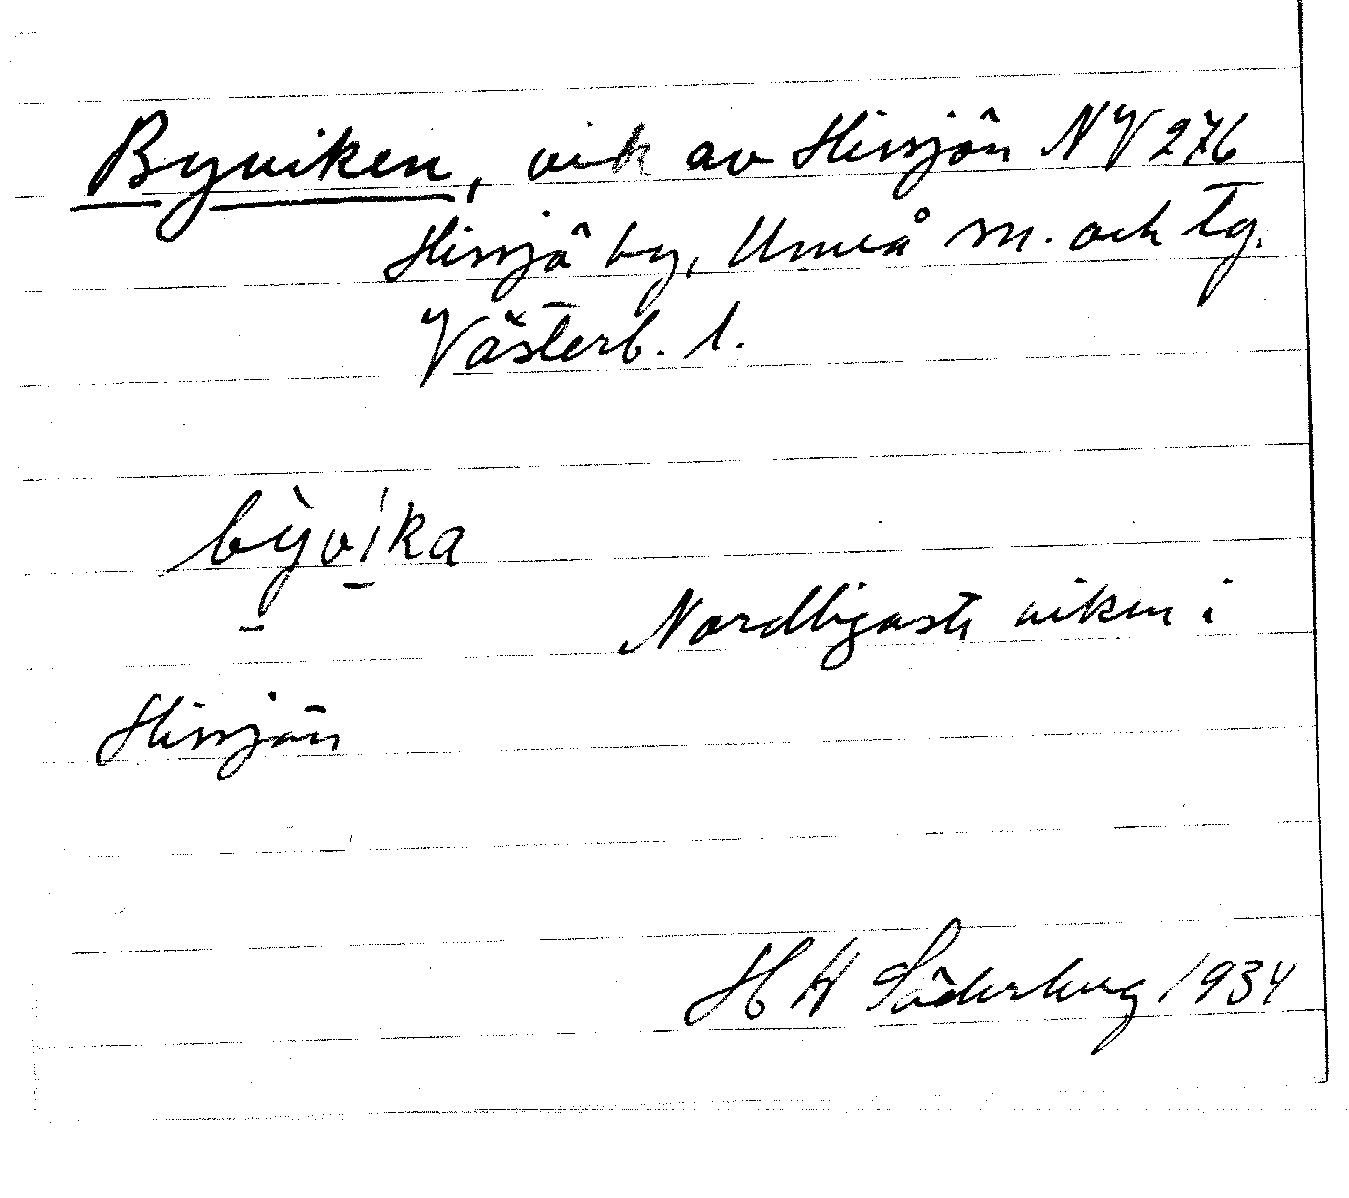 Byviken, vik av Hissjön NV 276
Hissjö by, Umeå sn. och tg.
Västerb. l.
bỳ̱ví̱ka
Nordligaste viken i
Hissjön
H W Söderberg 1934